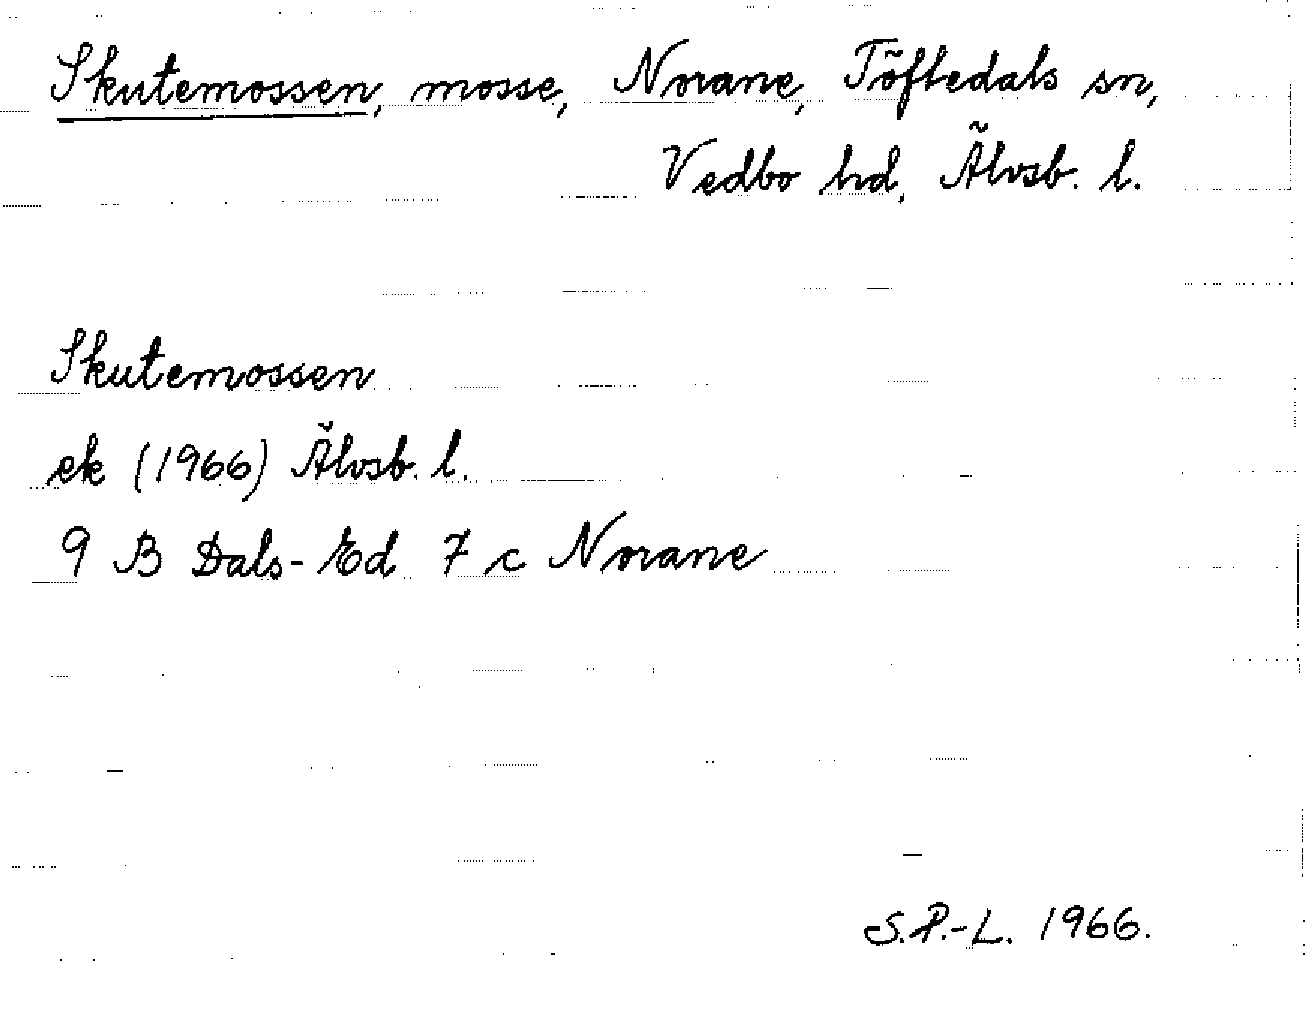 Skutemossen, mosse, Norane, Töftedals sn,
Vedbo hd, Älvsb. l.
Skutemossen
ek (1966) Älvsb. l.
9 B Dals-Ed 7 c Norane
S.P.-L. 1966.